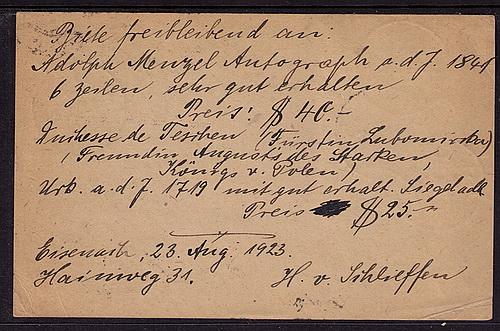 Biete freibleibend an:
Adolph Menzel Autograph a. d. J. 1841
6 Zeilen, sehr gut erhalten
Preis: $ 40.-
Duchesse de Teschen (Fürstin Lubomirska)
(Freundin Augusts des Starken,
Königs v. Polen)
Urk. a. d. J. 1719 mit gut erhalt. Siegel
Preis $ 25.-
Eisenach, 23. Aug. 1923.
Hainweg 31. H. v. Schlieffen